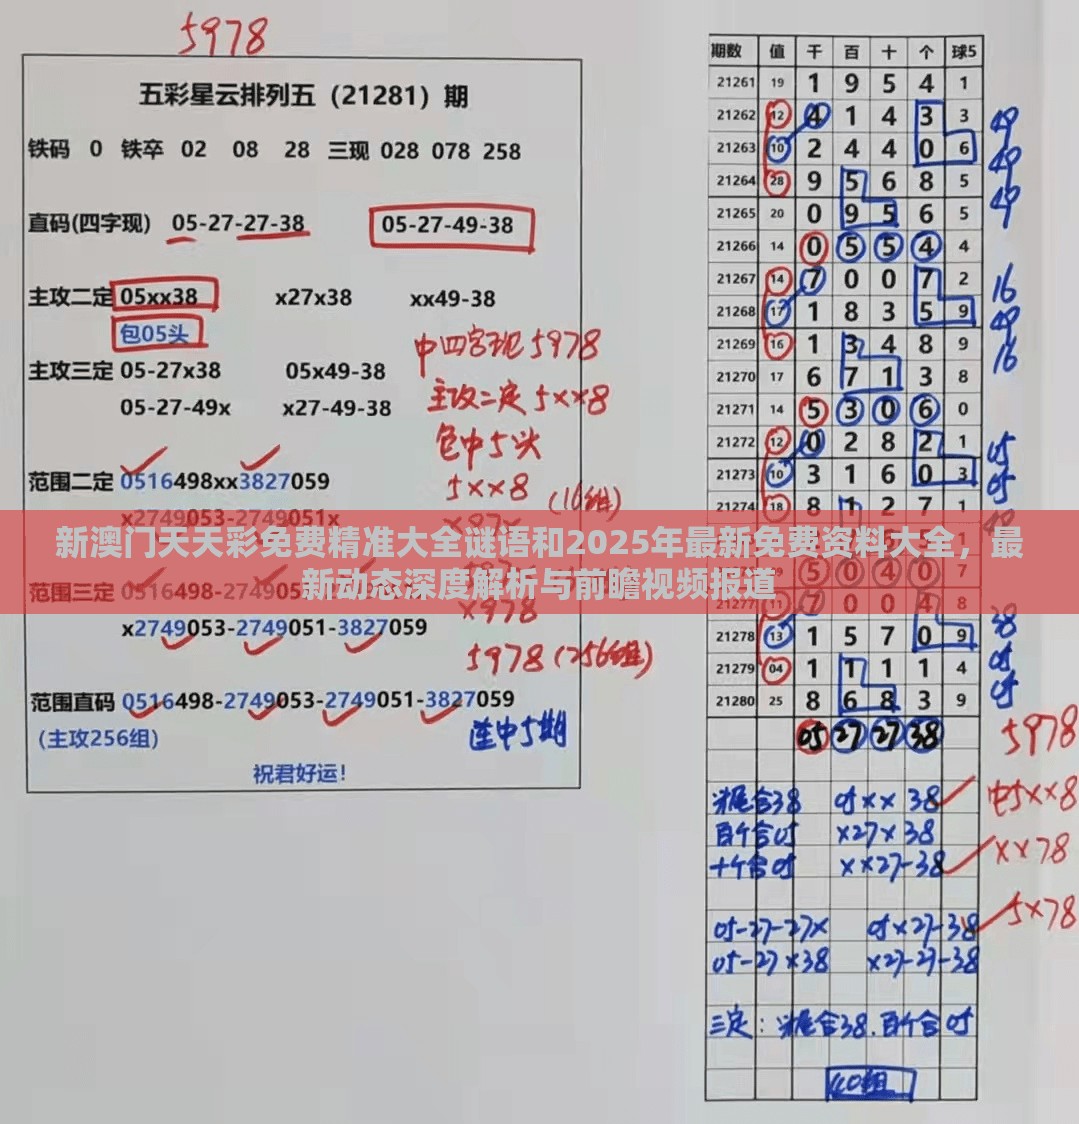 5978
五彩星云排列五（21281）期
铁码 0 铁卒 02 08 28 三现 028 078 258
直码(四字现) 05-27-27-38 05-27-49-38
主攻二定 05xx38 x27x38 xx49-38
包05头
主攻三定 05-27x38 05x49-38
05-27-49x x27-49-38
中四字现5978
主攻二定5xx8
包中5头
5xx8 (16组)
范围二定 0516498xx3827059
x2749053-2749051x
新澳门天天彩免费精准大全谜语和2025年最新免费资料大全，最
新动态深度解析与前瞻视频报道
范围三定
x978
x2749053-2749051-3827059
5978(256组)
范围直码 0516498-2749053-2749051-3827059
(主攻256组)
连中5期
祝君好运！
期数 值 千 百 十 个 球5
21261 19 1 9 5 4 1
21262 12 4 1 4 3 3
21263 10 2 4 4 0 6
21264 28 9 5 6 8 5
21265 20 0 9 5 6 5
21266 14 0 5 5 4 4
21267 14 7 0 0 7 2
21268 17 1 8 3 5 9
21269 16 1 3 4 8 9
21270 17 6 7 1 3 8
21271 14 5 3 0 6 0
21272 12 0 2 8 2 1
21273 10 3 1 6 0 3
21274 18 8 1 2 7 1
5 0 4 0 7
21277 11 7 0 0 4 8
21278 13 1 5 7 0 9
21279 04 1 1 1 1 4
21280 25 8 6 8 3 9
05 27 27 38
49
49
49
16
49
16
05
05
38
05
05
5978
05xx38 中5xx8
百个合05 x27x38
十个合05 xx27-38 xx78
05-27-27x 05x27-38 5x78
05-27x38 x27-27-38
三定：
40组